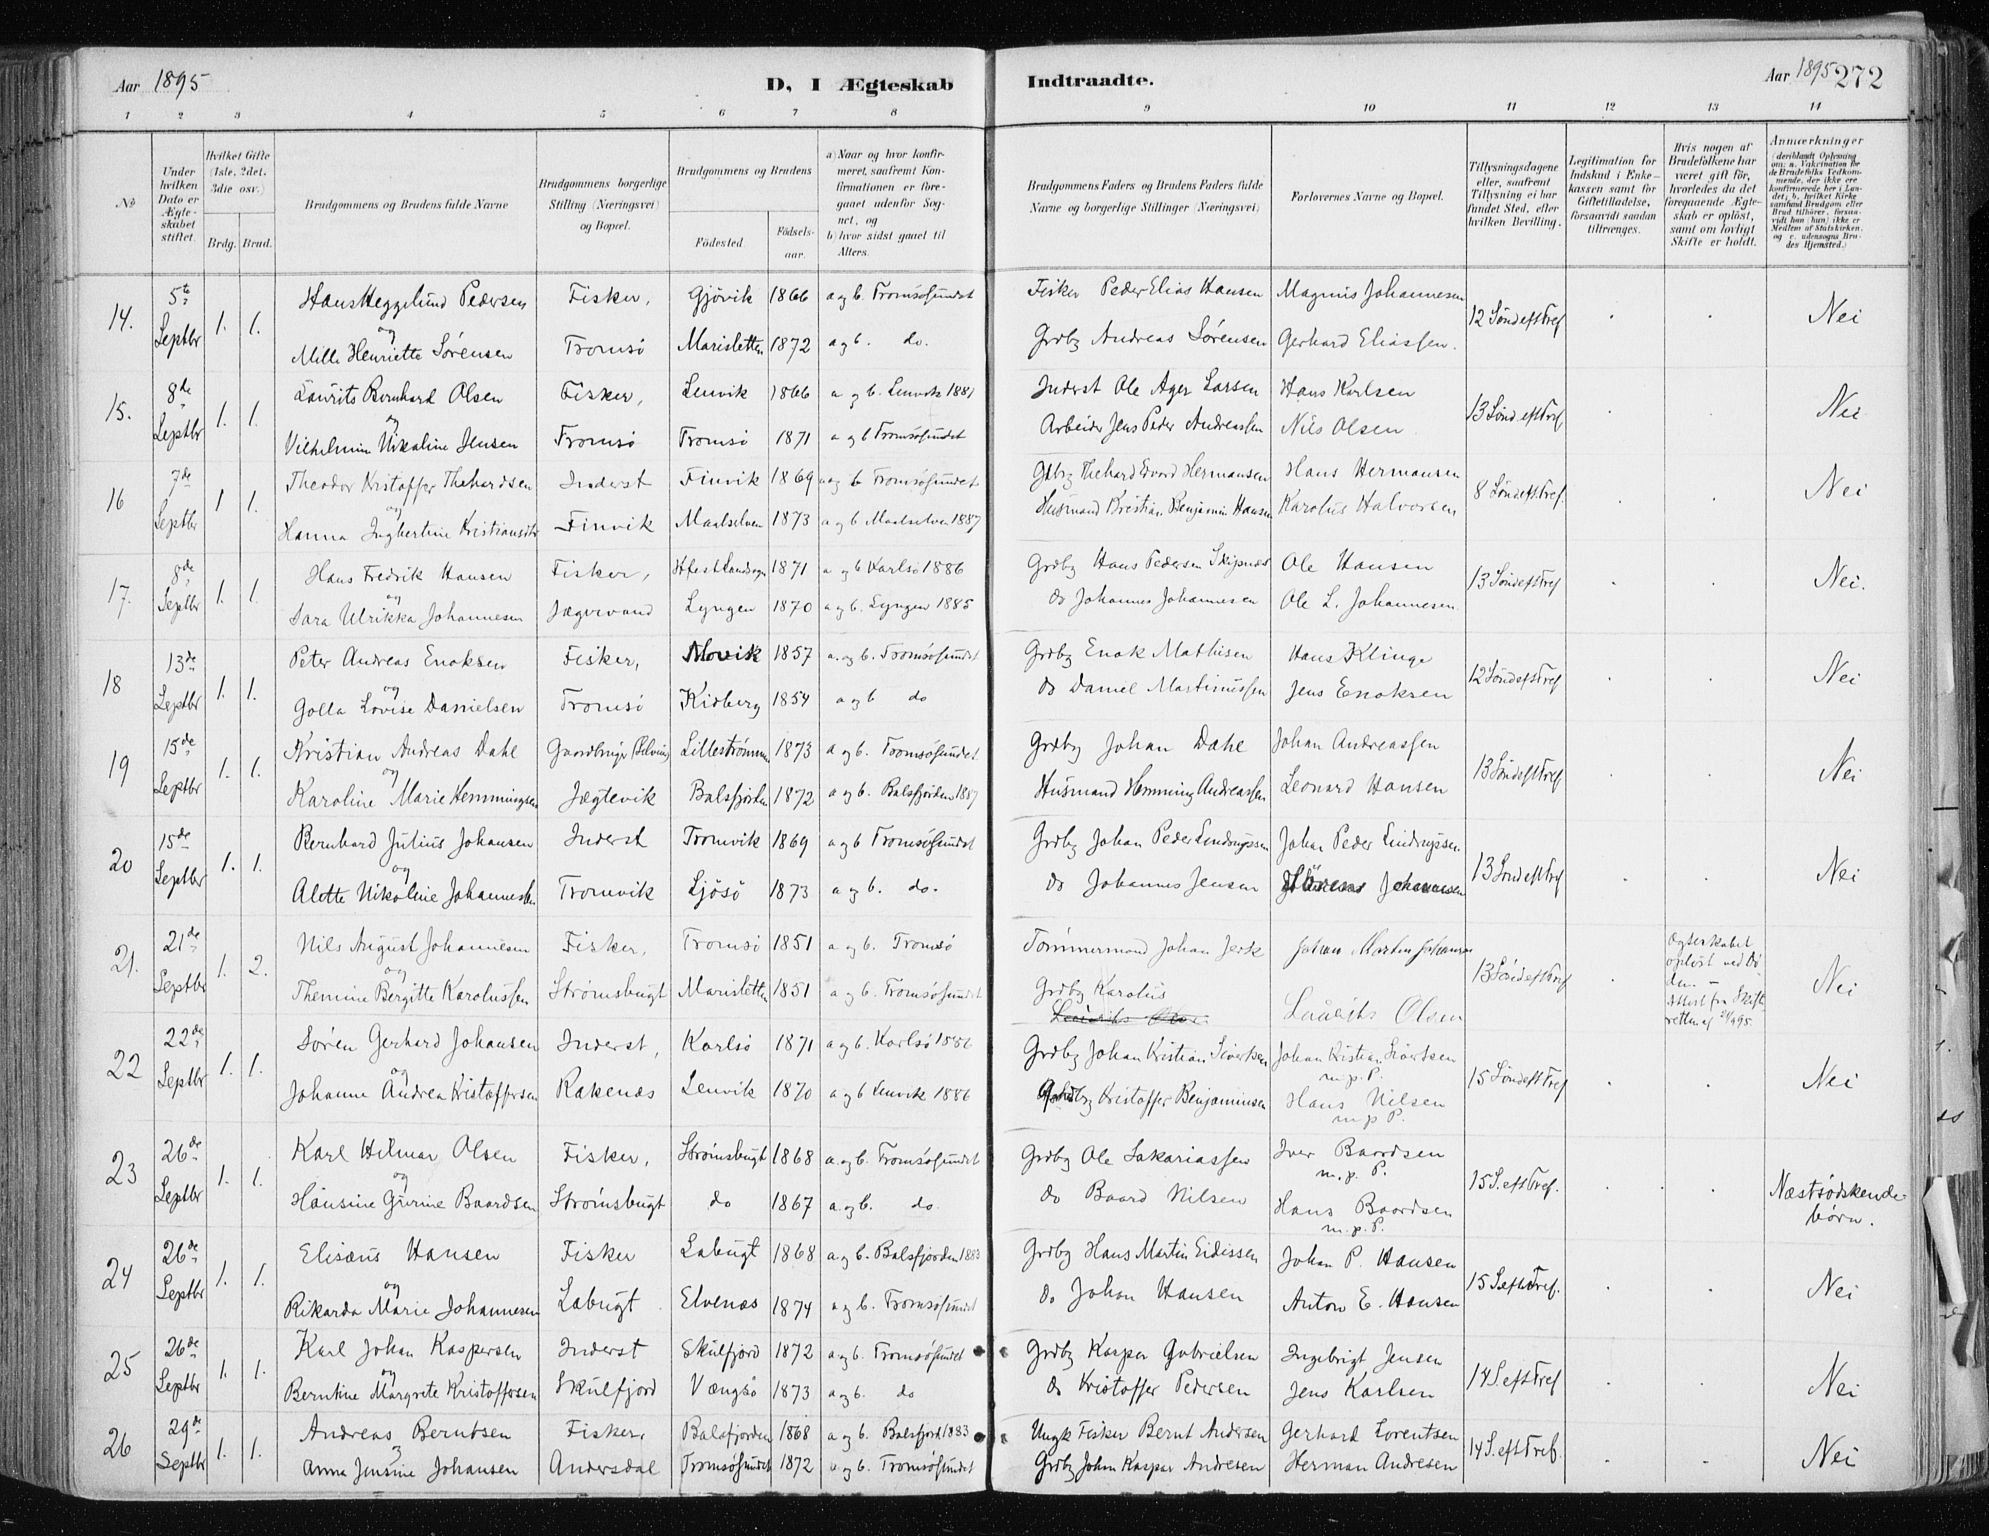 Aar 1895
D, I Ægteskab
Indtraadte.
Aar 1895 272
1 2 3 4 5 6 7 8 9 10 11 12 13 14
No
Under hvilken Dato er Ægteskabet stiftet.
Hvilket Gifte (1ste, 2det, 3die osv.)
Brdg. Brud.
Brudgommens og Brudens fulde Navne
Brudgommens borgerlige Stilling (Næringsvei) og Bopæl.
Brudgommens og Brudens
Fødested.
Fødselsaar.
a) Naar og hvor konfirmeret, saafremt Konfirmationen er foregaaet udenfor Sognet, og
b) hvor sidst gaaet til Alters.
Brudgommens Faders og Brudens Faders fulde Navne og borgerlige Stillinger (Næringsvei)
Forlovernes Navne og Bopæl.
Tillysningsdagene eller, saafremt Tillysning ei har fundet Sted, efter hvilken Bevilling.
Legitimation for Indskud i Enkekassen samt for Giftetilladelse, forsaavidt saadan tiltrænges.
Hvis nogen af Brudefolkene har været gift før, hvorledes du det foregaaende Ægteskab er opløst, samt om lovligt Skifte er holdt.
Anmærkninger
14. 5te Septbr 1. 1. Hans Heggelund Pedersen Fisker, Gjövik 1866 a og b. Tromsösundet Fisker Peder Elias Hansen Magnus Johannesen 12 Sönd eft Tref . . Nei
og Mille Henriette Sörensen Tromsö Marisletten 1872 a og b. do. Grdbg Andreas Sörensen Gerhard Eliassen.
15. 8de Septbr 1. 1. Laurits Bernhard Olsen Fisker, Lenvik 1866 a og b. Lenvik 1881 Inderst Ole Ager Larsen Hans Karlsen 13 Sönd eft Tref . . Nei
og Vilhelmine Nikoline Jensen Tromsö Tromsö 1871 a og b Tromsösundet Arbeider Jens Peder Andreassen Nils Olsen
16 7de Septbr 1 1. Theodor Kristoffer Thehardsen Inderst Finvik 1869 a og b Tromsösundet Gdbg Thehard Edvard Hermansen Hans Hermansen 8 Sönd eft Tref. . . Nei
og Hanna Ingbertine Kristiansdtr Finvik Maalselven 1873 a og b Maalselven 1887 Husmand Kristian Benjamin Hansen Karolus Halvorsen
17. 8de Septbr 1. 1. Hans Fredrik Hansen Fisker, 1871 a og b Karlsö 1886 Grdbg Hans Pedersen Skipnæs Ole Hansen 13 Sönd eft Tref . . Nei.
og Sara Ulrikka Johannesen Jægervand Lyngen 1870 a og b. Lyngen 1885 do Johannes Johannesen Ole L. Johannesen
18 13de Septbr 1. 1. Peter Andreas Enoksen Fisker, Movik 1857 a. og b. Tromsösundet Grdbg Enok Mathisen Hans Klinge 12 Sönd eft Tref . . Nei
og Golla Lovise Danielsen Tromsö Kidberg 1854 a og b do do Daniel Martinussen Jens Enoksen
19 15de Septbr 1. 1. Kristian Andreas Dahl Gaardbruger Lilleströmmen 1873 a og b. Tromsösundet Grdbg Johan Dahl Johan Andreassen 13 Sönd eft Tref . . Nei
og Karoline Marie Hemmingsen Jægtevik Balsfjorden 1872 a og b. Balsfjorden 1887 Husmand Hemming Andreassen Leonard Hansen
20 15de Septbr 1. 1. Bernhard Julius Johansen Inderst Tromvik 1869 a og b Tromsösundet Grdbg Johan Peder Lindrupsen Johan Peder Lindrupsen 13 Sönd eft Tref . . Nei
og Alette Nikoline Johannesen Tromvik Ljösö 1873 a og b. do. do Johannes Jensen Johannesen
21. 21de Septbr 1. 2. Nils August Johannesen Fisker, Tromsö 1851 a og b. Tromsö Tömmermand Johan Jerk Johan Martin Johansen 13 Sönd eft Tref Ægteskabet opløst ved Døden. – Attest fra Skifteretten af Nei
og Themine Bergitte Karolussen Strömsbugt Marisletten 1851 a og b. Tromsösundet Grdbg Karolus Laurits Olsen
22 22de Septbr 1. 1. Sören Gerhard Johansen Inderst, Karlsö 1871 a og b. Karlsö 1886 Grdbg Johan Kristian Sivertsen Johan Kristian Sivertsen m. p. P. 15 Sönd eft Tref . . Nei
og Johanne Andrea Kristoffersen Rakenæs Lenvik 1870 a og b Lenvik 1886 Kristoffer Benjaminsen Hans Nilsen m p P.
23 26de Septbr 1. 1. Karl Hilmar Olsen Fisker, Strömsbugt 1868 a og b. Tromsösundet Grdbg Ole Sakariassen Iver Baardsen m. p. P. 15 S. eft Tref. . . Næstsødskendebørn.
og Hansine Gurine Baardsen Strömsbugt do 1867 a og b. do. do Baard Nilsen Hans Baardsen m. p. P.
24 26de Septbr 1. 1. Elisæus Hansen Fisker Labugt 1868 a og b. Balsfjorden 1883 Grdbg Hans Martin Eidissen Johan P. Hansen 15 S. eft Tref. . . Nei
og Rikarda Marie Johannesen Labugt Elvenæs 1874 a og b. Tromsösundet do Johan Hansen Anton E. Hansen
25 26de Septbr 1. 1. Karl Johan Kaspersen Inderst Skulfjord 1872 a og b. Tromsösundet Grdbg Kasper Gabrielsen Ingebrigt Jensen 14 S. eft Tref . . Nei
og Berntine Margrete Kristoffersen Skulfjord Vængsö 1873 a og b. do do Kristoffer Pedersen Jens Karlsen
26 29de Septbr 1. 1. Andreas Berntsen Fisker, Balsfjorden 1868 a og b. Balsfjord 1883 Ungk Fisker Bernt Andersen Gerhard Lorentsen 14 S. eft Tref. . . Nei
og Anna Jensine Johansen Andersdal Tromsösundet 1872 a og b. Tromsösundet Grdbg Johan Kaspar Andresen Herman Andresen